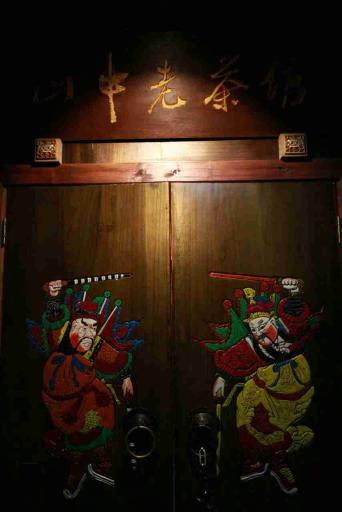 山中老茶馆